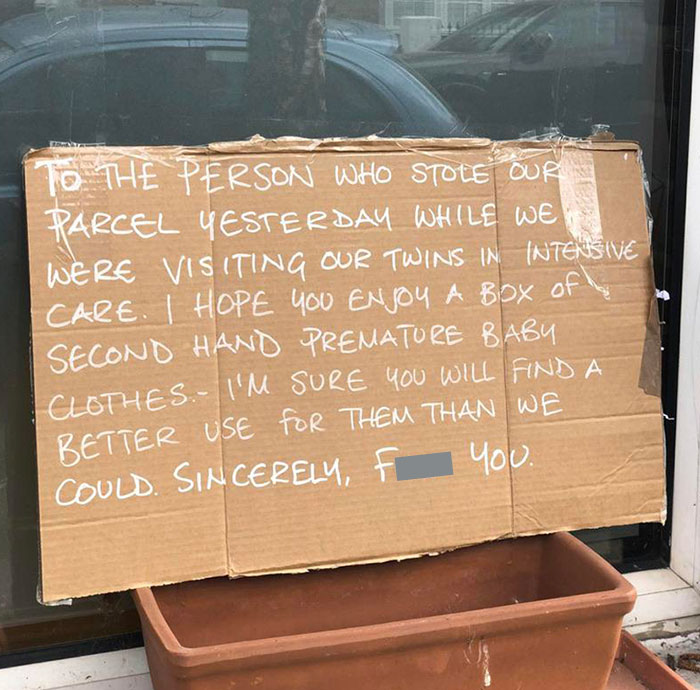 TO THE PERSON WHO STOLE OUR
PARCEL YESTERDAY WHILE WE
WERE VISITING OUR TWINS IN INTENSIVE
CARE. I HOPE YOU ENJOY A BOX OF
SECOND HAND PREMATURE BABY
CLOTHES.- I'M SURE YOU WILL FIND A
BETTER USE FOR THEM THAN WE
COULD. SINCERELY, F YOU.